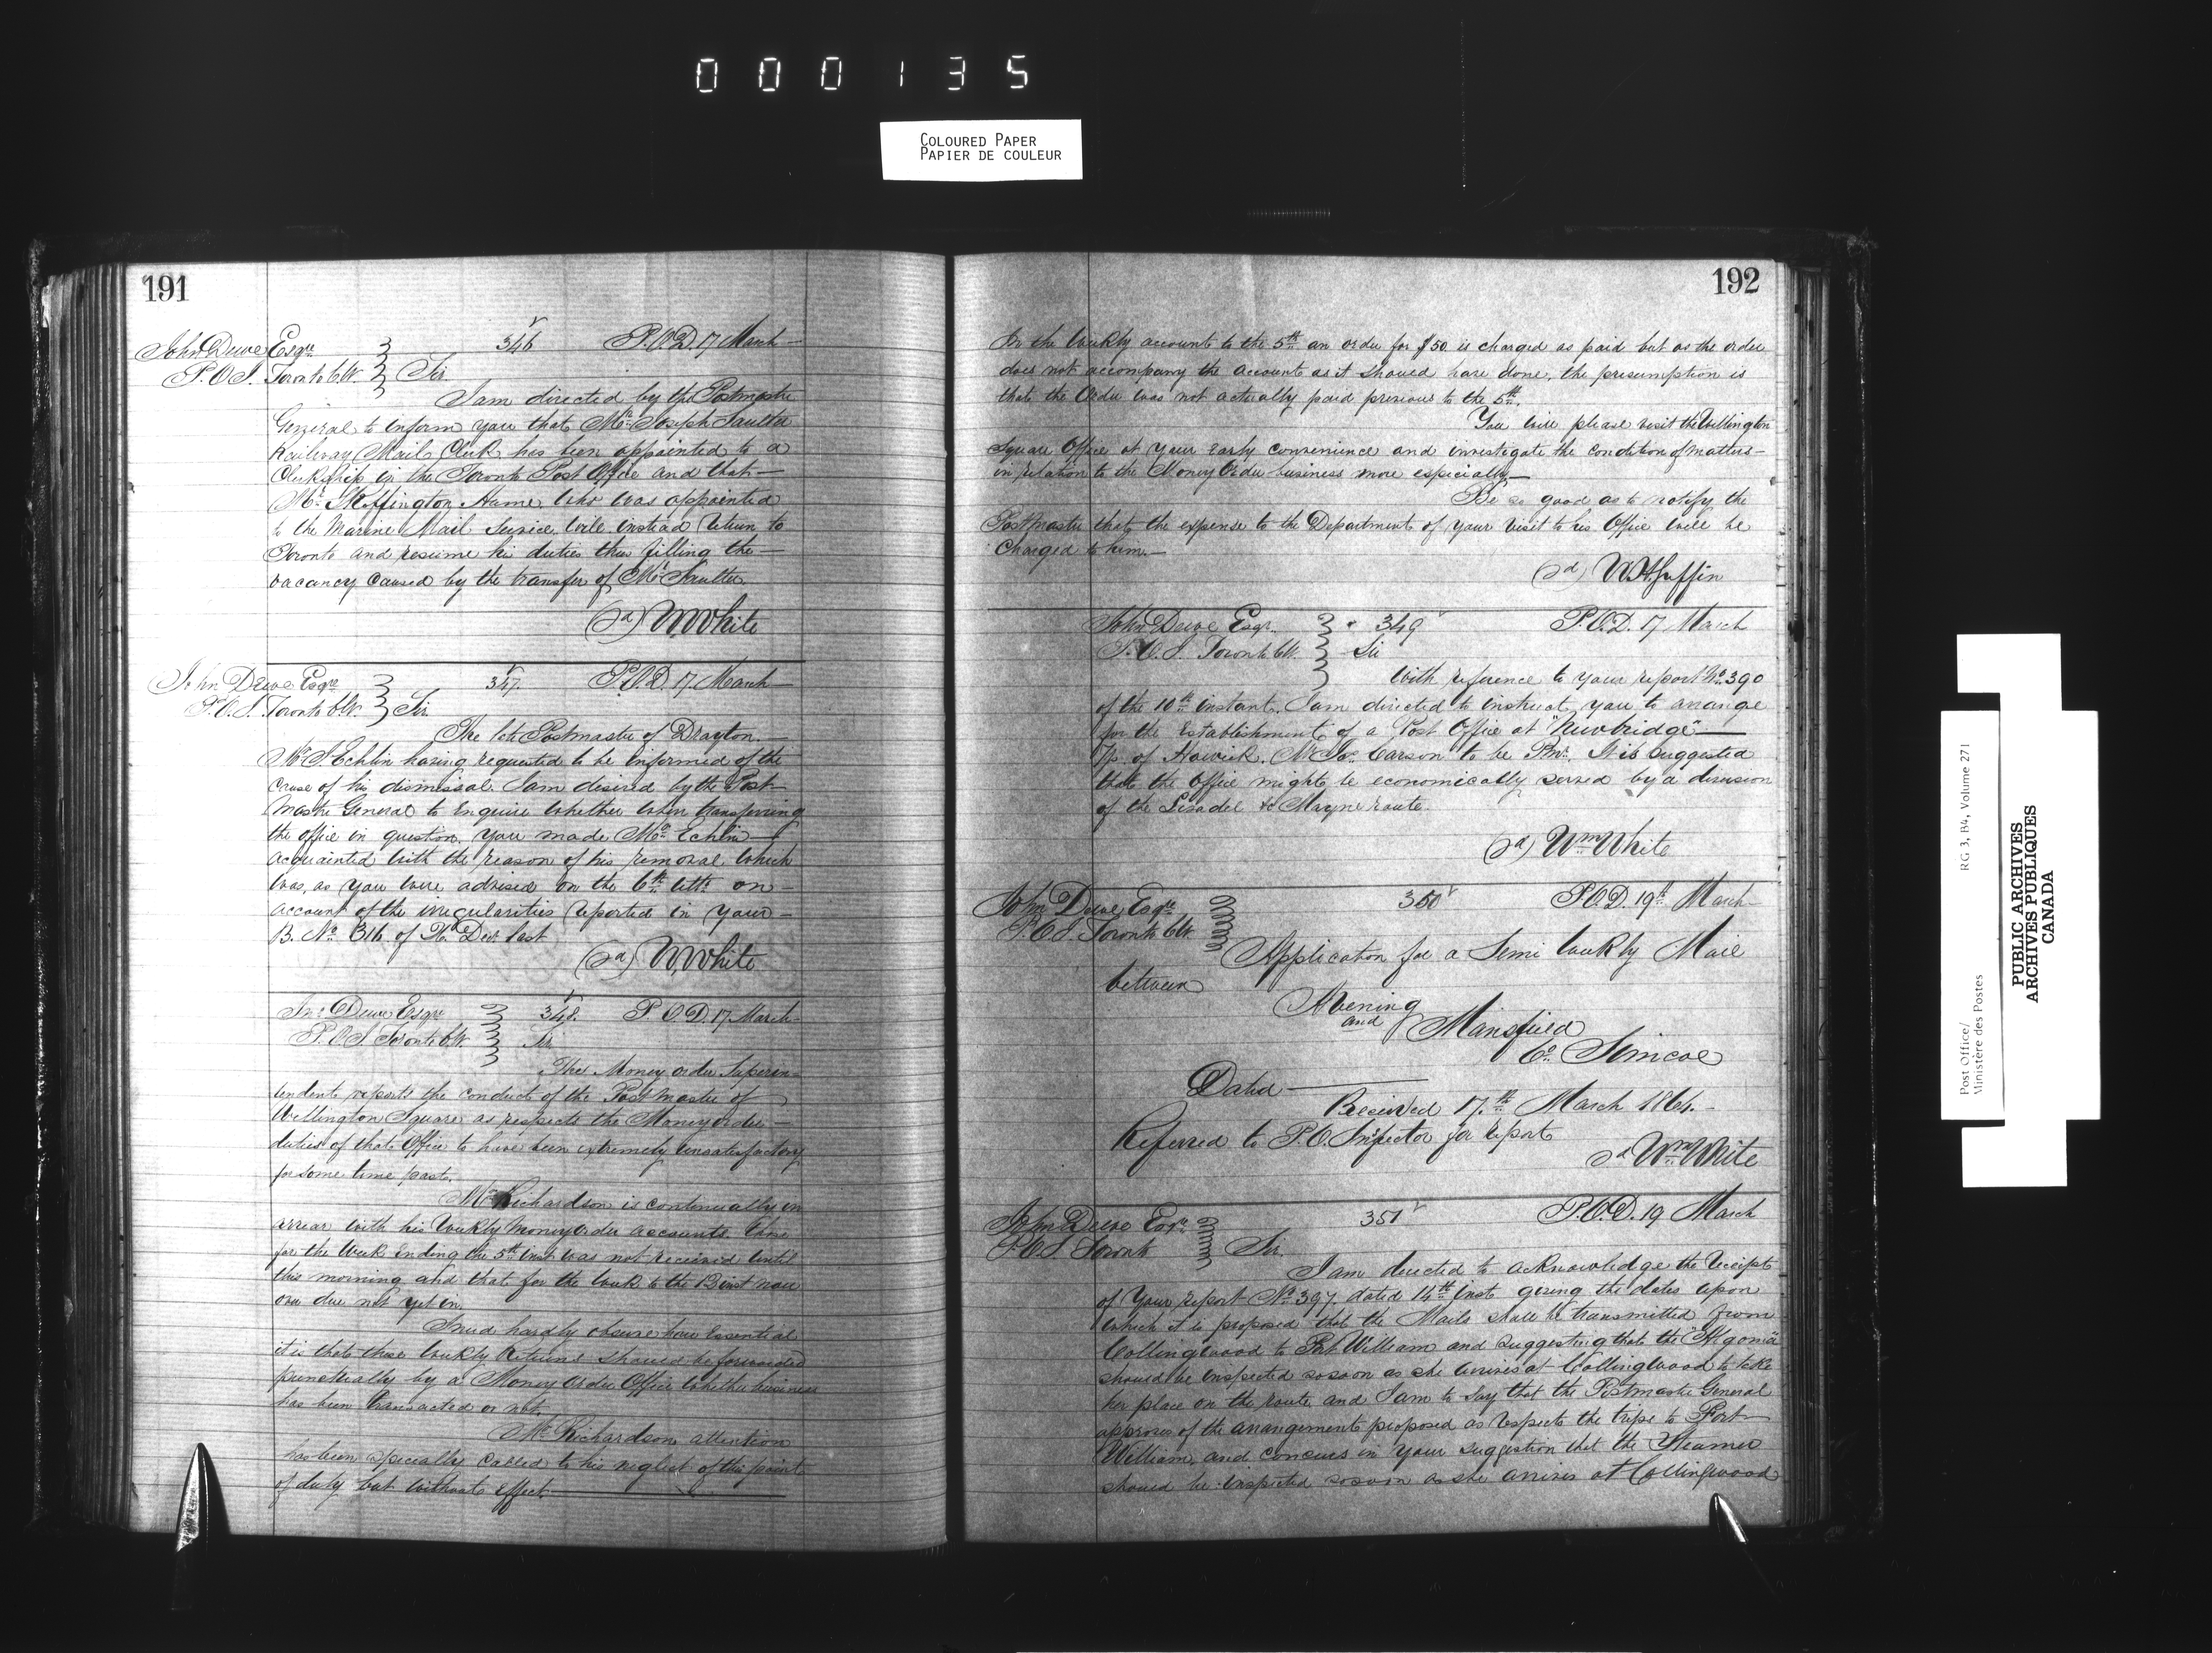 000135
COLOURED PAPER
PAPIER DE COULEUR
191
John Dewe Esqre 346 P.O.D. 17 March
P.O.I. Toronto C.W. Sir
I am directed by the Postmaster
General to inform you that Mr. Joseph Saulter
Railway Mail Clerk has been appointed to a
Clerkship in the Toronto Post Office and that
Mr. Skeffington Hume who was appointed
to the Marine Mail Service will instead return to
Toronto and resume his duties thus filling the
vacancy caused by the transfer of Mr. Saulter
(sd) W White
John Dewe Esqre 347. P.O.D. 17. March
P.O.I. Toronto C.W. Sir
The late Postmaster of Drayton
Mr. Echlin having requested to be informed of the
cause of his dismissal. I am desired by the Post-
master General to enquire whether when transferring
the office in question, you made Mr. Echlin
acquainted with the reason of his removal which
was, as you were advised on the 6th ulto. on
account of the irregularities reported in your
B. No. 316 of Decr. last
(sd) W. White
Jno. Dewe Esqre 348. P.O.D. 17. March
P.O.I. Toronto C.W. Sir
The Money order Superin-
tendent reports the conduct of the Postmaster of
Wellington Square as respects the Money order
duties of that Office to have been extremely unsatisfactory
for some time past.
Mr. Richardson is continually in
arrear with his weekly money order accounts. Those
for the week ending the 5th inst was not received until
this morning and that for the week to the 12 inst now
over due not yet in.
I need hardly observe how essential
it is that these weekly returns should be forwarded
punctually by a Money order Office whether business
has been transacted or not.
Mr. Richardson attention
has been specially called to his neglect of this point
of duty but without effect.
192
In the weekly accounts to the 5th an order for $50 is charged as paid but as the order
does not accompany the account as it should have done, the presumption is
that the Order was not actually paid previous to the 5th.
You will please visit the Wellington
Square Office at your early convenience and investigate the condition of matters
in relation to the Money Order business more especially
Be so good as to notify the
Postmaster that the expense to the Department of your visit to his Office will be
charged to him.
(sd) W.H. Griffin
John Dewe Esqr. 349 P.O.D. 17 March
P.O.I. Toronto C.W. Sir
With reference to your report No. 390
of the 10th instant. I am directed to instruct you to arrange
for the Establishment of a Post Office at "Newbridge"
Tp of Howick. Mr Jos. Carson to be Pmr. It is suggested
that the Office might be economically served by a diversion
of the Lisadel & Mayne route.
(sd) Wm White
John Dewe Esqre 350 P.O.D. 19th March
P.O.I. Toronto C.W.
Application for a Semi weekly Mail
between
Avening
and Mansfield
Co. Simcoe
Dated
Received 17th March 1864.
Referred to P.O. Inspector for report
sd Wm White
John Dewe Esqre 351 P.O.D. 19 March
P.O.I Toronto Sir
I am directed to acknowledge the receipt
of your report No. 397 dated 14th inst giving the dates upon
which it is proposed that the Mails shall be transmitted from
Collingwood to Fort William and suggesting that the "Algoma"
should be inspected so soon as she arrives at Collingwood to take
her place on the route and I am to say that the Postmaster General
approves of the arrangements proposed as respects the trips to Fort
William, and concurs in your suggestion that the Steamer
should be inspected so soon as she arrives at Collingwood
Post Office/
Ministère des Postes
RG 3, B4, Volume 271
PUBLIC ARCHIVES
ARCHIVES PUBLIQUES
CANADA